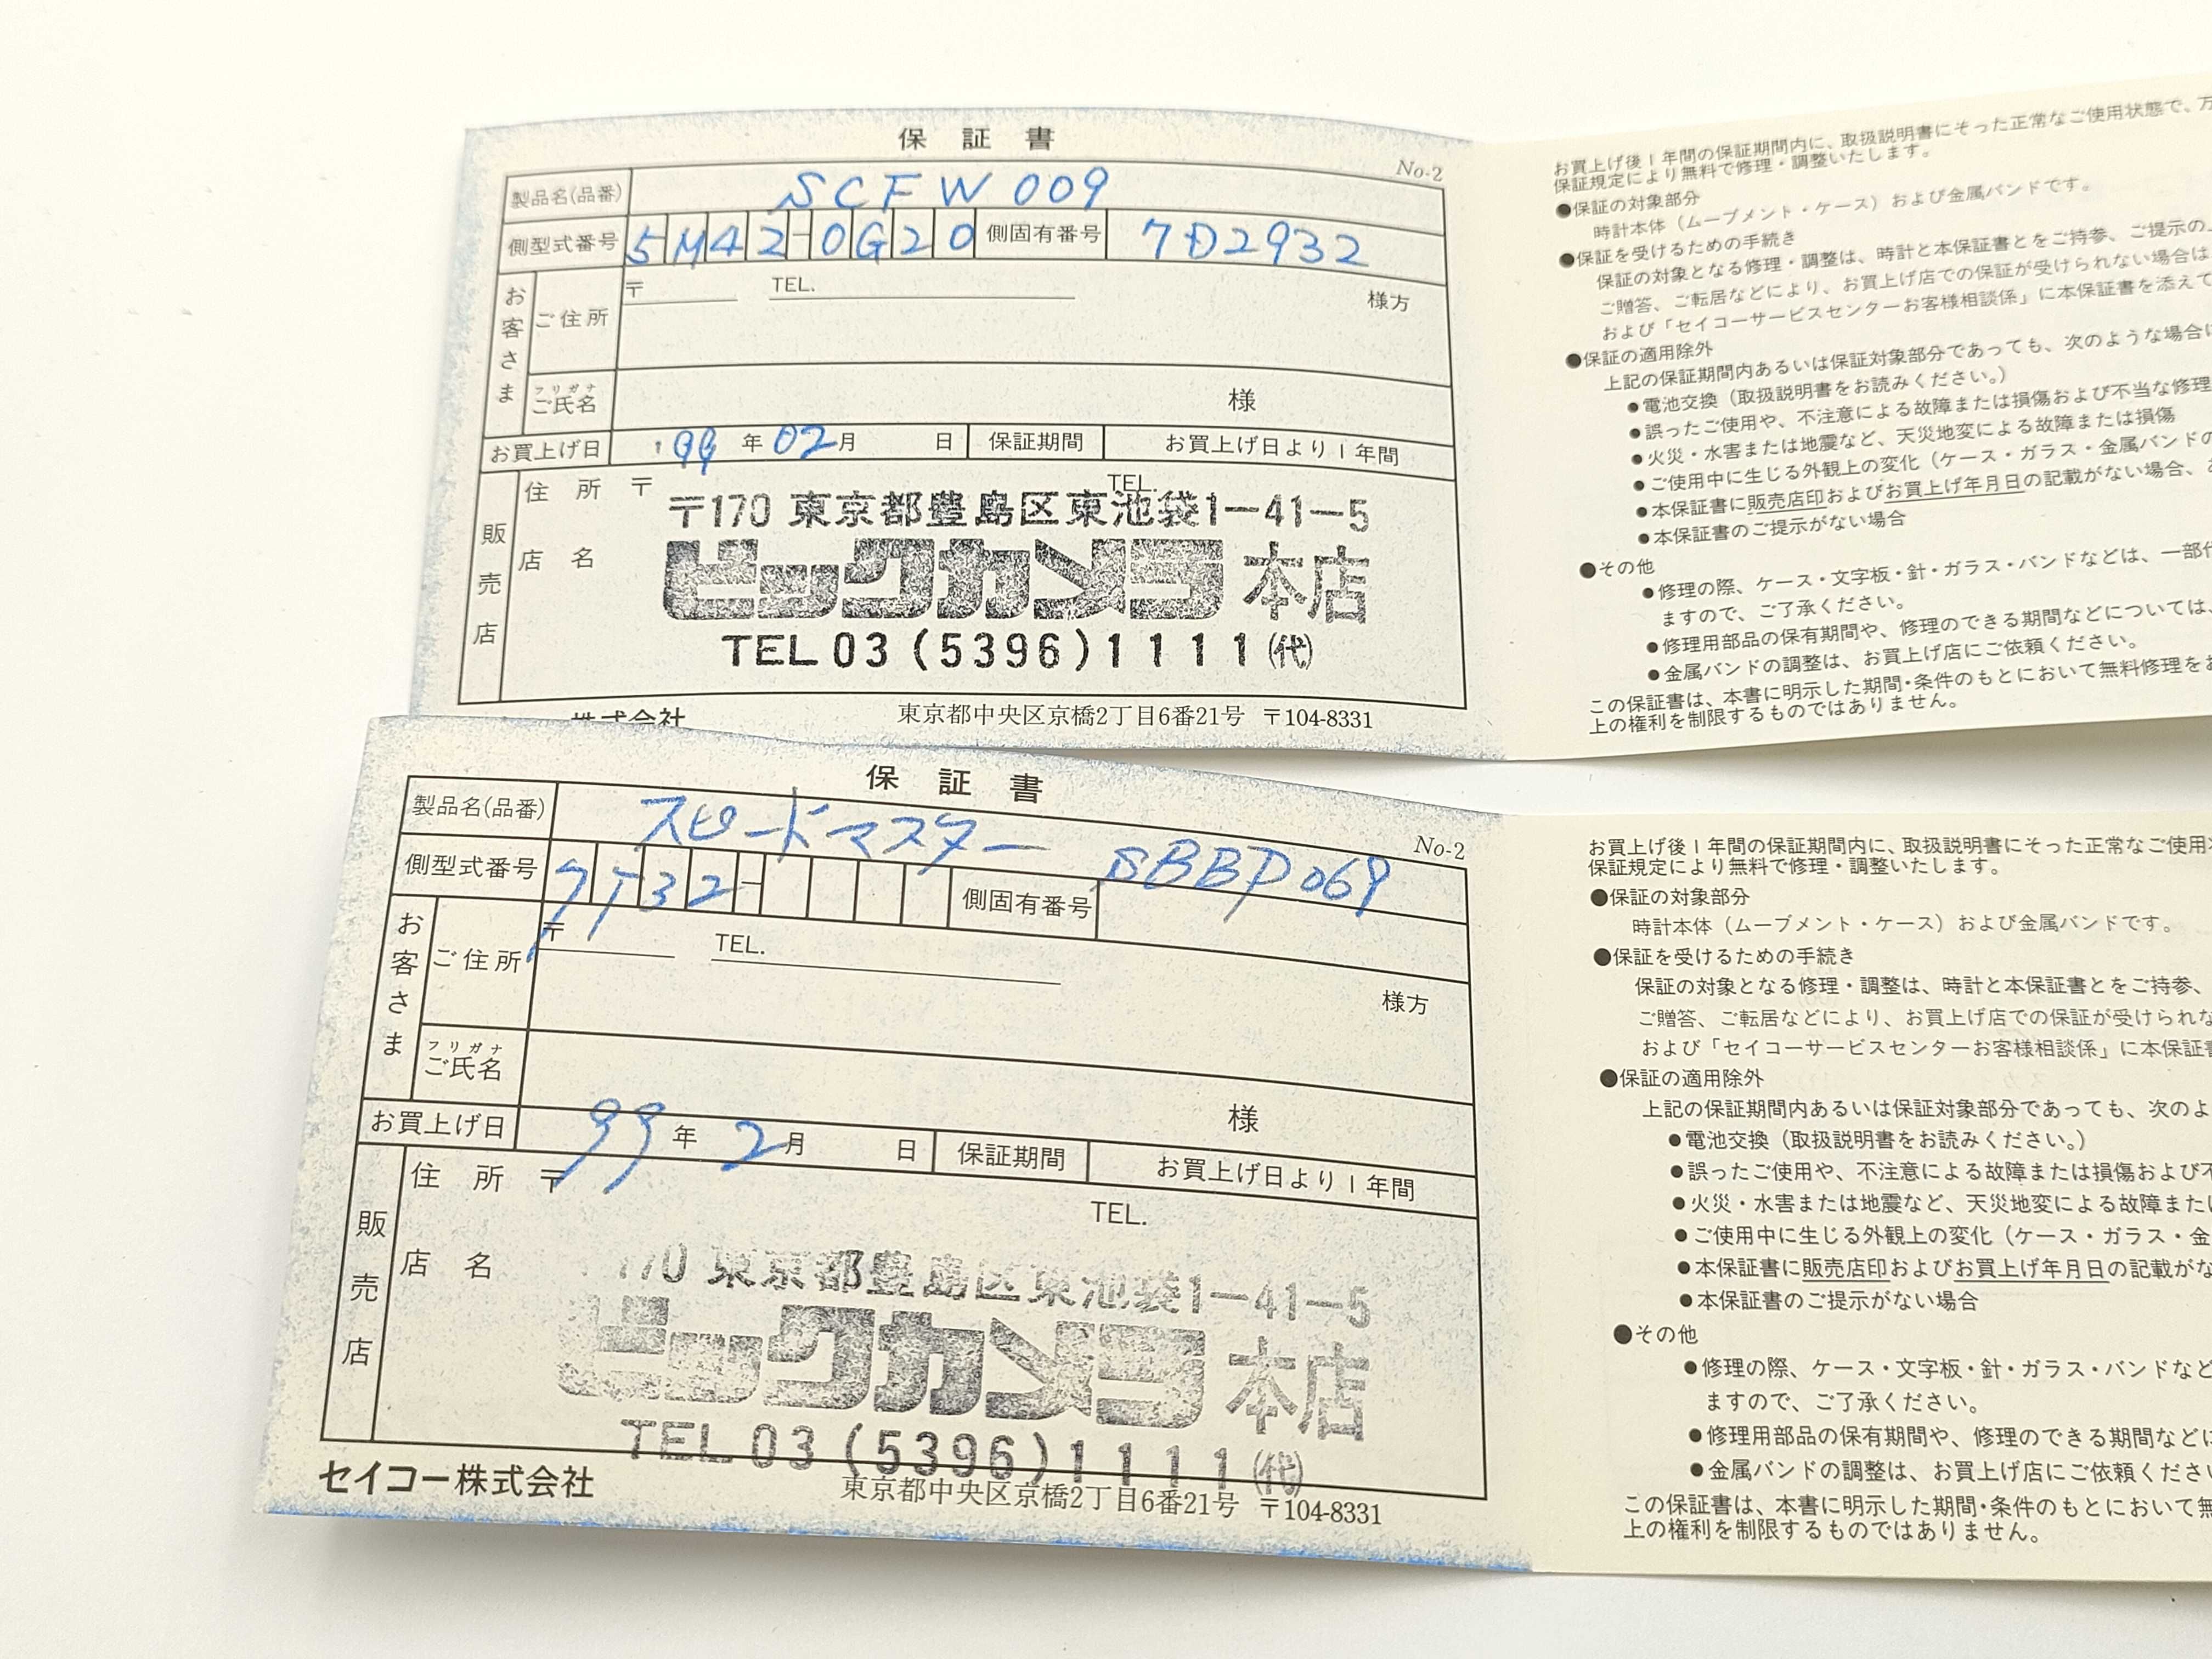 保証書
No-2
製品名(品番) SCFW009
側型式番号 5M42-0G20 側固有番号 7D2932
お客さま
ご住所 〒 TEL.
様方
フリガナ
ご氏名 様
お買上げ日 '99年02月 日 保証期間 お買上げ日より1年間
販売店
住所 〒 TEL.
〒170 東京都豊島区東池袋1-41-5
店名 ビックカメラ 本店
TEL 03(5396)1111(代)
株式会社 東京都中央区京橋2丁目6番21号 〒104-8331
お買上げ後1年間の保証期間内に、取扱説明書にそった正常なご使用状態で、万
保証規定により無料で修理・調整いたします。
●保証の対象部分
時計本体（ムーブメント・ケース）および金属バンドです。
●保証を受けるための手続き
保証の対象となる修理・調整は、時計と本保証書とをご持参、ご提示の上
ご贈答、ご転居などにより、お買上げ店での保証が受けられない場合は
および「セイコーサービスセンターお客様相談係」に本保証書を添えて
●保証の適用除外
上記の保証期間内あるいは保証対象部分であっても、次のような場合に
●電池交換（取扱説明書をお読みください。）
●誤ったご使用や、不注意による故障または損傷および不当な修理
●火災・水害または地震など、天災地変による故障または損傷
●ご使用中に生じる外観上の変化（ケース・ガラス・金属バンドの
●本保証書に販売店印およびお買上げ年月日の記載がない場合、
●本保証書のご提示がない場合
●その他
●修理の際、ケース・文字板・針・ガラス・バンドなどは、一部代
ますので、ご了承ください。
●修理用部品の保有期間や、修理のできる期間などについては、
●金属バンドの調整は、お買上げ店にご依頼ください。
この保証書は、本書に明示した期間・条件のもとにおいて無料修理をお
上の権利を制限するものではありません。
保証書
No-2
製品名(品番) スピードマスター SBBP069
側型式番号 7T32- 側固有番号
お客さま
ご住所 〒 TEL.
様方
フリガナ
ご氏名 様
お買上げ日 99年2月 日 保証期間 お買上げ日より1年間
販売店
住所 〒 TEL.
170 東京都豊島区東池袋1-41-5
店名 ビックカメラ 本店
TEL 03(5396)1111(代)
セイコー株式会社 東京都中央区京橋2丁目6番21号 〒104-8331
お買上げ後1年間の保証期間内に、取扱説明書にそった正常なご使用
保証規定により無料で修理・調整いたします。
●保証の対象部分
時計本体（ムーブメント・ケース）および金属バンドです。
●保証を受けるための手続き
保証の対象となる修理・調整は、時計と本保証書とをご持参、
ご贈答、ご転居などにより、お買上げ店での保証が受けられな
および「セイコーサービスセンターお客様相談係」に本保証書
●保証の適用除外
上記の保証期間内あるいは保証対象部分であっても、次のよ
●電池交換（取扱説明書をお読みください。）
●誤ったご使用や、不注意による故障または損傷および不
●火災・水害または地震など、天災地変による故障また
●ご使用中に生じる外観上の変化（ケース・ガラス・金
●本保証書に販売店印およびお買上げ年月日の記載がな
●本保証書のご提示がない場合
●その他
●修理の際、ケース・文字板・針・ガラス・バンドなど
ますので、ご了承ください。
●修理用部品の保有期間や、修理のできる期間などに
●金属バンドの調整は、お買上げ店にご依頼くださ
この保証書は、本書に明示した期間・条件のもとにおいて無
上の権利を制限するものではありません。